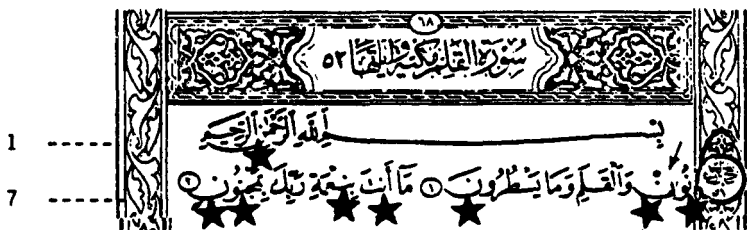 ٦٨
سُورَةُ القَلَمِ مَكِّيَّة وَآيَاتُهَا ٥٢
1 ------ بِسْمِ ٱللَّهِ ٱلرَّحْمَٰنِ ٱلرَّحِيمِ
7 ------ نُونْ وَٱلْقَلَمِ وَمَا يَسْطُرُونَ ١ مَآ أَنتَ بِنِعْمَةِ رَبِّكَ بِمَجْنُونٍ ٢